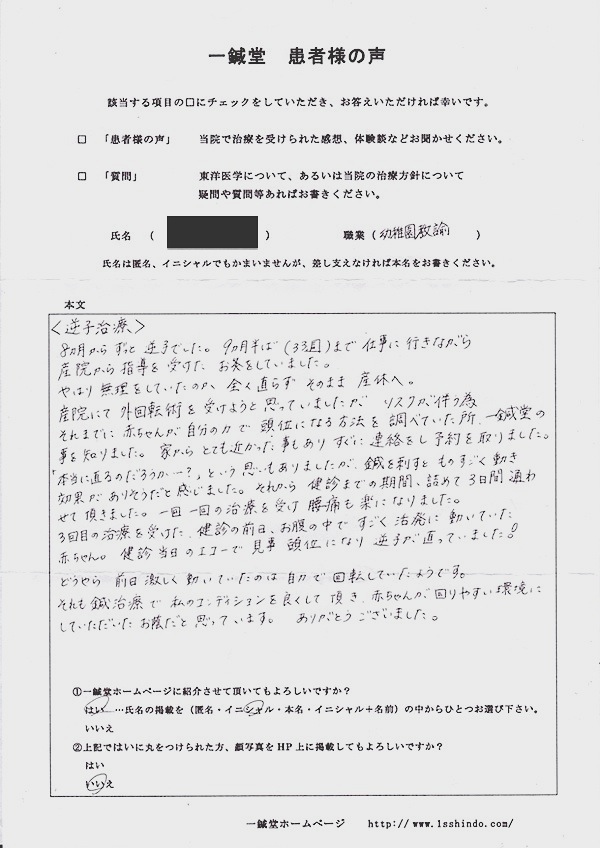 一鍼堂 患者様の声
該当する項目の□にチェックをしていただき、お答えいただければ幸いです。
□ 「患者様の声」 当院で治療を受けられた感想、体験談などお聞かせください。
□ 「質問」 東洋医学について、あるいは当院の治療方針について
疑問や質問等あればお書きください。
氏名 ( ) 職業 (幼稚園教諭 )
氏名は匿名、イニシャルでもかまいませんが、差し支えなければ本名をお書きください。
本文
<逆子治療>
8ヵ月からずっと逆子でした。9ヵ月半ば(33週)まで仕事に行きながら
産院から指導を受けた、お灸をしていました。
やはり無理をしていたのか、全く直らずそのまま産休へ。
産院にて外回転術を受けようと思っていましたが、リスクが伴う為
それまでに赤ちゃんが自分の力で頭位になる方法を調べていた所、一鍼堂の
事を知りました。家からとても近かった事もありすぐに連絡をし予約を取りました。
「本当に直るのだろうか…?」という思いもありましたが、鍼を刺すとものすごく動き
効果がありそうだと感じました。それから健診までの期間、詰めて3日間通わ
せて頂きました。一回一回の治療を受け腰痛も楽になりました。
3回目の治療を受けた、健診の前日、お腹の中ですごく活発に動いていた
赤ちゃん。健診当日のエコーで見事頭位になり逆子が直っていました!!
どうやら前日激しく動いていたのは自力で回転していたようです。
それも鍼治療で私のコンディションを良くして頂き、赤ちゃんが回りやすい環境に
していただいたお蔭だと思っています。 ありがとうございました。
①一鍼堂ホームページに紹介させて頂いてもよろしいですか?
はい …氏名の掲載を(匿名・イニシャル・本名・イニシャル+名前)の中からひとつお選び下さい。
いいえ
②上記ではいに丸をつけられた方、顔写真をHP上に掲載してもよろしいですか?
はい
いいえ
一鍼堂ホームページ http://www.1sshindo.com/